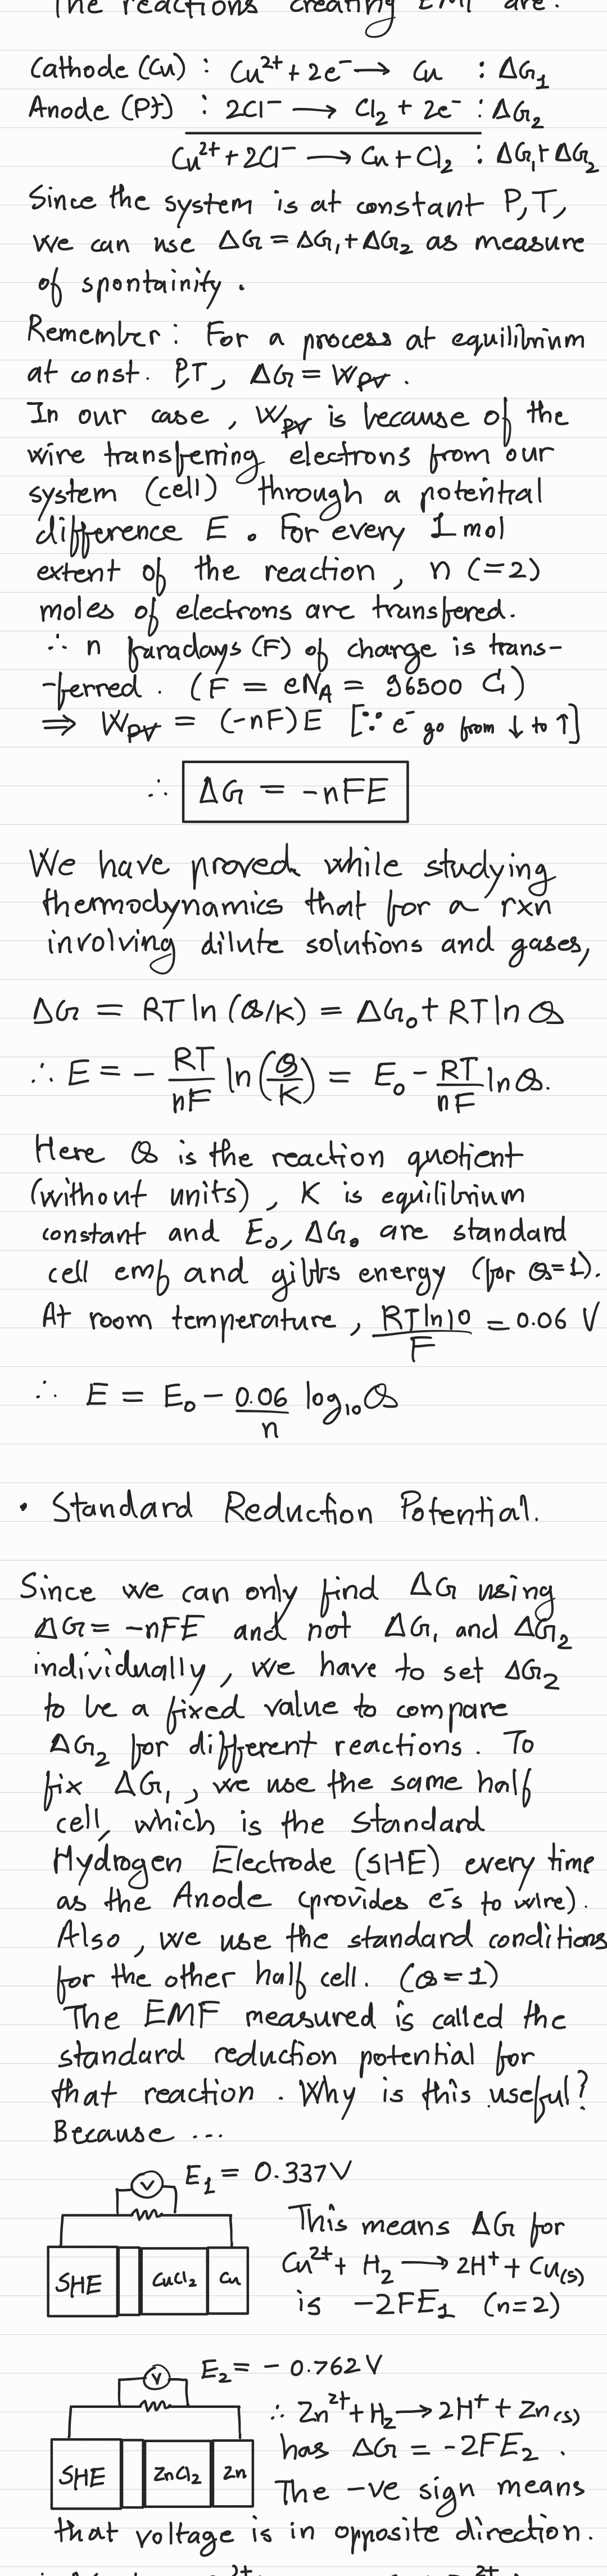 The reactions creating EMF are:
Cathode (Cu) : Cu²⁺ + 2e⁻ ⟶ Cu : ΔG₁
Anode (Pt) : 2Cl⁻ ⟶ Cl₂ + 2e⁻ : ΔG₂
Cu²⁺ + 2Cl⁻ ⟶ Cu + Cl₂ : ΔG₁+ΔG₂
Since the system is at constant P,T,
we can use ΔG = ΔG₁+ΔG₂ as measure
of spontainity.
Remember: For a process at equilibrium
at const. P,T, ΔG = W_P̶V̶.
In our case, W_P̶V̶ is because of the
wire transferring electrons from our
system (cell) through a potential
difference E. For every 1 mol
extent of the reaction, n (=2)
moles of electrons are transfered.
∴ n faradays (F) of charge is trans-
-ferred. (F = eN_A = 96500 C)
⇒ W_P̶V̶ = (-nF)E [∵ e⁻ go from ↓ to ↑]
∴ ΔG = -nFE
We have proved while studying
thermodynamics that for a rxn
involving dilute solutions and gases,
ΔG = RT ln (Q/K) = ΔG₀ + RT ln Q
∴ E = - RT/nF ln(Q/K) = E₀ - RT/nF ln Q.
Here Q is the reaction quotient
(without units), K is equilibrium
constant and E₀, ΔG₀ are standard
cell emf and gibbs energy (for Q=1).
At room temperature, RT ln 10/F = 0.06 V
∴ E = E₀ - 0.06/n log₁₀ Q
• Standard Reduction Potential.
Since we can only find ΔG using
ΔG = -nFE and not ΔG₁ and ΔG₂
individually, we have to set ΔG₂
to be a fixed value to compare
ΔG₂ for different reactions. To
fix ΔG₁, we use the same half
cell, which is the Standard
Hydrogen Electrode (SHE) every time
as the Anode (provides e⁻s to wire).
Also, we use the standard conditions
for the other half cell. (Q=1)
The EMF measured is called the
standard reduction potential for
that reaction. Why is this useful?
Because ...
V E₁ = 0.337V
This means ΔG for
Cu²⁺ + H₂ ⟶ 2H⁺ + Cu(s)
is -2FE₁ (n=2)
SHE CuCl₂ Cu
V E₂ = - 0.762V
∴ Zn²⁺ + H₂ ⟶ 2H⁺ + Zn(s)
has ΔG = -2FE₂.
SHE ZnCl₂ Zn
The -ve sign means
that voltage is in opposite direction.